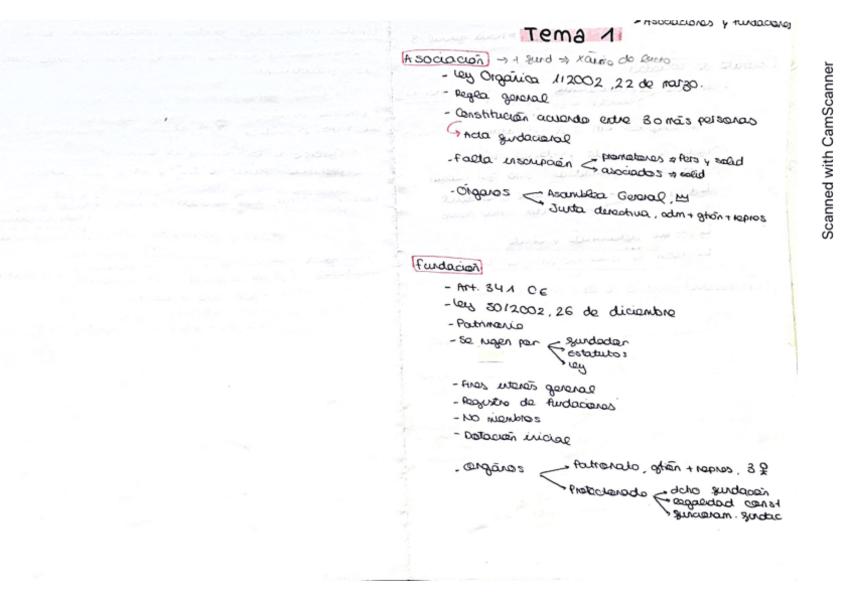 - Asociaciones y fundaciones
Tema 1
Asociación → + fund ⇒ xánimo de lucro
- Ley Orgánica 1/2002, 22 de marzo.
- Regla general
- Constitución acuerdo entre 3 o más personas
↳ Acta fundacional
- Falta inscripción promotores ⇒ pers y solid
asociados ⇒ solid
- Órganos Asamblea General,
Junta directiva, adm + gtión + repres
Fundación
- Art. 34.1 CE
- Ley 50/2002, 26 de diciembre
- Patrimonio
- Se rigen por fundador
estatutos
ley
- Fines interés general
- Registro de fundaciones
- No miembros
- Dotación inicial
- Orgános Patronato, gtión + repres, 3
Protectorado dcho fundación
legalidad const
funcionam. fundac
Scanned with CamScanner